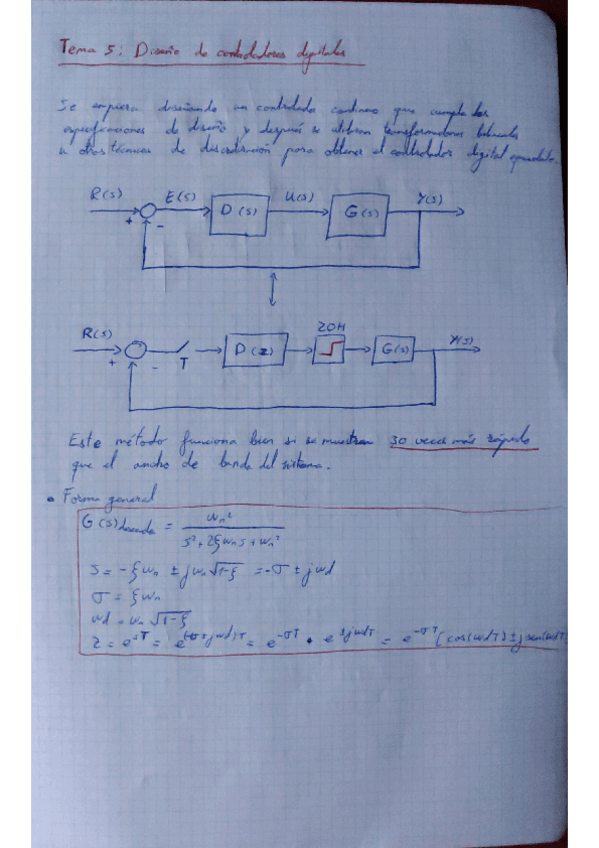 Tema 5: Diseño de controladores digitales
Se empieza diseñando un controlador continuo que cumpla las
especificaciones de diseño y después se utilizan transformaciones bilineales
u otras técnicas de discretización para obtener el controlador digital equivalente.
R(s) E(s) D(s) U(s) G(s) Y(s)
+ -
ZOH
R(s) D(z) G(s) Y(s)
+ - T
Este método funciona bien si se muestrea 30 veces más rápido
que el ancho de banda del sistema.
• Forma general
G(s)deseada = ωn² / s²+2ξωns+ωn²
s = -ξωn ± jωn√1-ξ = -σ ± jωd
σ = ξωn
ωd = ωn √1-ξ
z = e^sT = e^(-σ±jωd)T = e^-σT • e^±jωdT = e^-σT (cos(ωdT) ± j sen(ωdT)